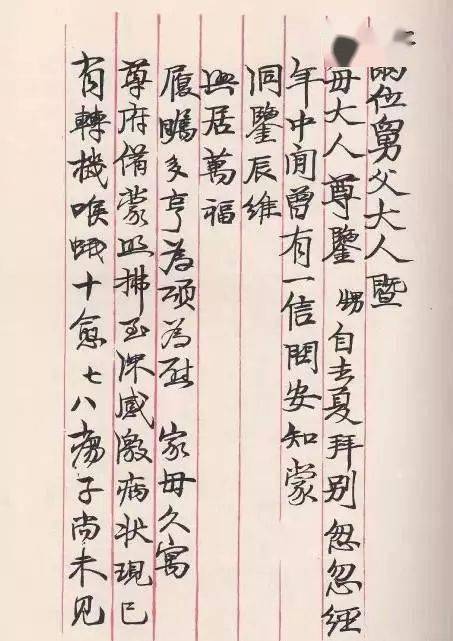 兩位舅父大人暨
母大人尊鑒 甥自去夏拜别忽忽經
年中间曾有一信問安知蒙
洞鑒辰維
興居萬福
履鵰多亨為頌為慰 家母久寓
尊府備蒙照拂至深感激病狀現已
有轉機喉蛾十愈七八瘍子尚未見